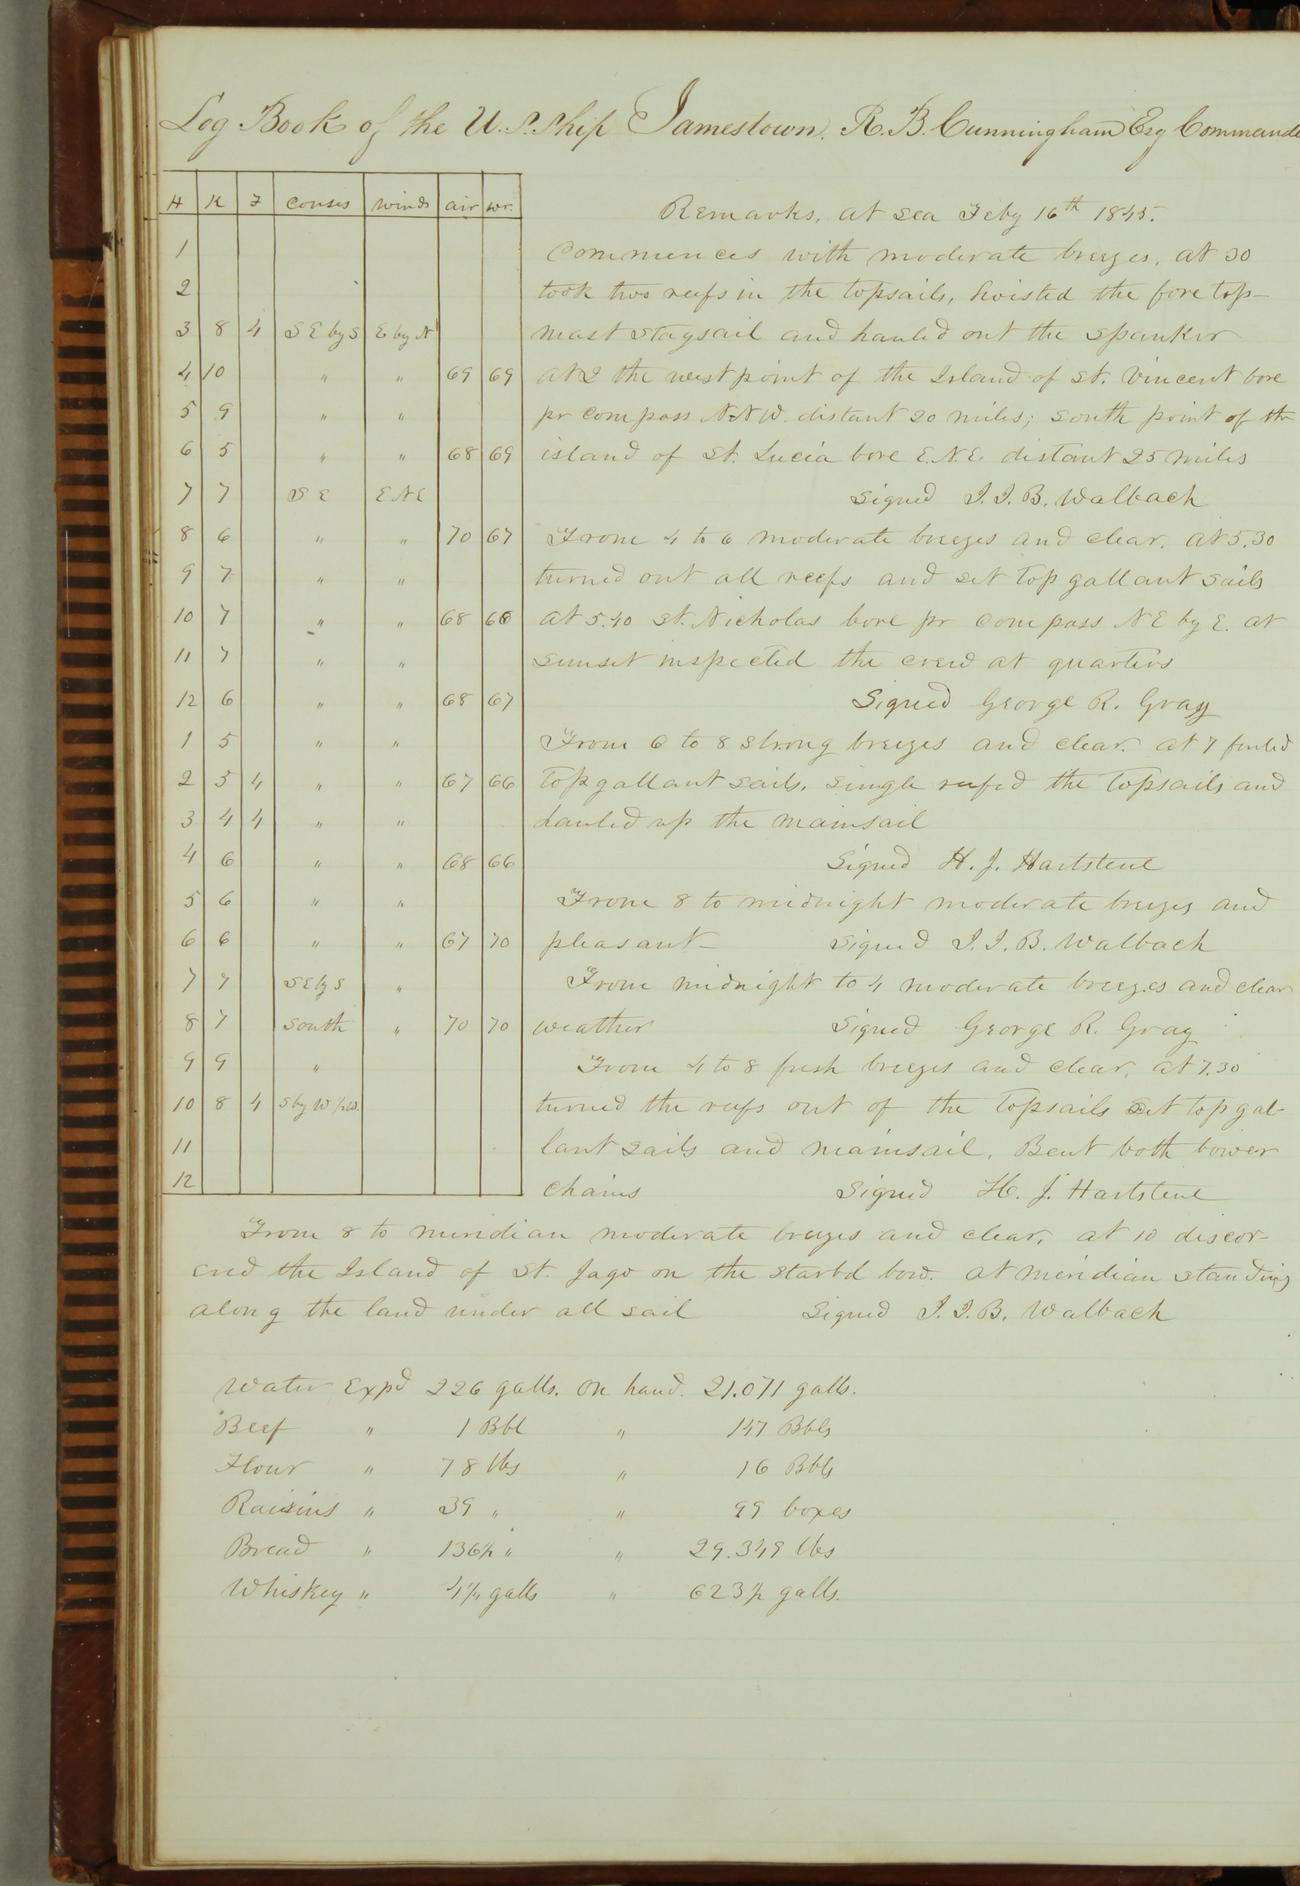 Log Book of the U.S. Ship Jamestown. R. B. Cunningham Esq Commande
H K F Courses Winds air wr.
Remarks, at sea Feby 16th 1845.
1
Commences with moderate breezes, at 30
2
took two reefs in the topsails, hoisted the fore top-
3 8 4 S E by S E by N
mast staysail and hauled out the spanker
4 10 " " 69 69
at 2 the west point of the Island of St. Vincent bore
5 9 " "
pr compass N.N.W. distant 20 miles; south point of the
6 5 " " 68 69
island of St. Lucia bore E.N.E. distant 25 miles
7 7 S E E N E
Signed J. J. B. Walbach
8 6 " " 70 67
From 4 to 6 moderate breezes and clear. at 5.30
9 7 " "
turned out all reefs and set top gallant sails
10 7 " " 68 66
at 5.40 St. Nicholas bore pr compass N E by E. at
11 7 " "
sunset inspected the crew at quarters
12 6 " " 68 67
Signed George R. Gray
1 5 " "
From 6 to 8 strong breezes and clear. at 7 furled
2 5 4 " " 67 66
top gallant sails, single reefed the topsails and
3 4 4 " "
hauled up the mainsail
4 6 " " 68 66
Signed H. J. Hartstene
5 6 " "
From 8 to midnight moderate breezes and
6 6 " " 67 70
pleasant- Signed J. J. B. Walbach
7 7 SE by S "
From midnight to 4 moderate breezes and clear
8 7 South " 70 70
weather Signed George R. Gray
9 9 "
From 4 to 8 fresh breezes and clear. at 7.30
10 8 4 S by W 1/2 W.
turned the reefs out of the topsails set top gal-
11
lant sails and mainsail. Bent both bower
12
chains Signed H. J. Hartstene
From 8 to meridian moderate breezes and clear. at 10 discov-
ered the Island of St. Jago on the starbd bow. at meridian standing
along the land under all sail Signed J. J. B. Walbach
Water Expd 226 galls. on hand. 21.071 galls.
Beef " 1 Bbl " 147 Bbls
Flour " 78 lbs " 16 Bbls
Raisins " 39 " " 99 boxes
Bread " 136 1/2 " " 29.349 lbs
Whiskey " 4 1/4 galls " 623 1/2 galls.